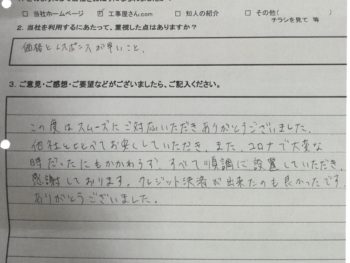 □ 当社ホームページ ☑ 工事屋さん.com □ 知人の紹介 □ その他(
チラシを見て 等
2. 当社を利用するにあたって、重視した点はありますか?
価格とレスポンスが早いこと。
3. ご意見・ご感想・ご要望などがございましたら、ご記入ください。
この度はスムーズにご対応いただきありがとうございました。
他社とくらべてお安くしていただき、また、コロナで大変な
時だったにもかかわらず、すべて順調に設置していただき、
感謝しております。クレジット決済が出来たのも良かったです。
ありがとうございました。